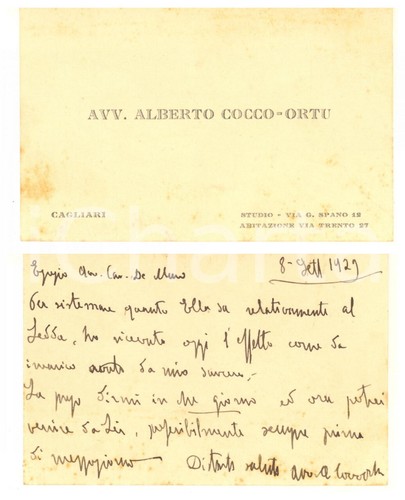 AVV. ALBERTO COCCO-ORTU
CAGLIARI
STUDIO - VIA G. SPANO 12
ABITAZIONE VIA TRENTO 27
8 - Sett 1929
Egregio Avv. Cav. De Muro
Per sistemare quanto Ella sa relativamente al
Ledda, ho ricevuto oggi l'effetto come da
incarico avuto da mio suocero,-
La prego dirmi in che giorno ed ora potrei
venire da Lei, preferibilmente sempre prima
di mezzogiorno
Distinti saluti